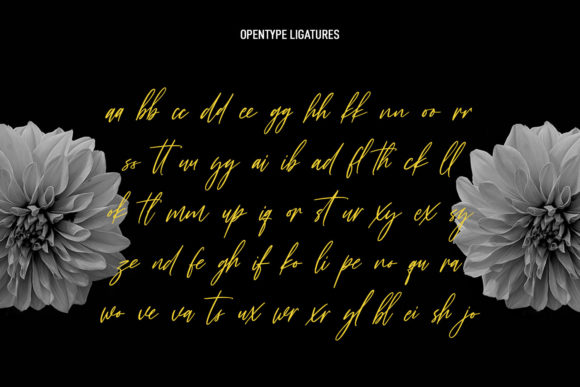 OPENTYPE LIGATURES
aa bb cc dd ee gg hh kk nn oo rr
ss tt uu yy ai ib ad fl th ck ll
ok tl mm up iq or st ur xy ex sy
ze nd fe gh if ko li pe no qu ra
wo ve va ts ux wr xr yl bl ei sh jo